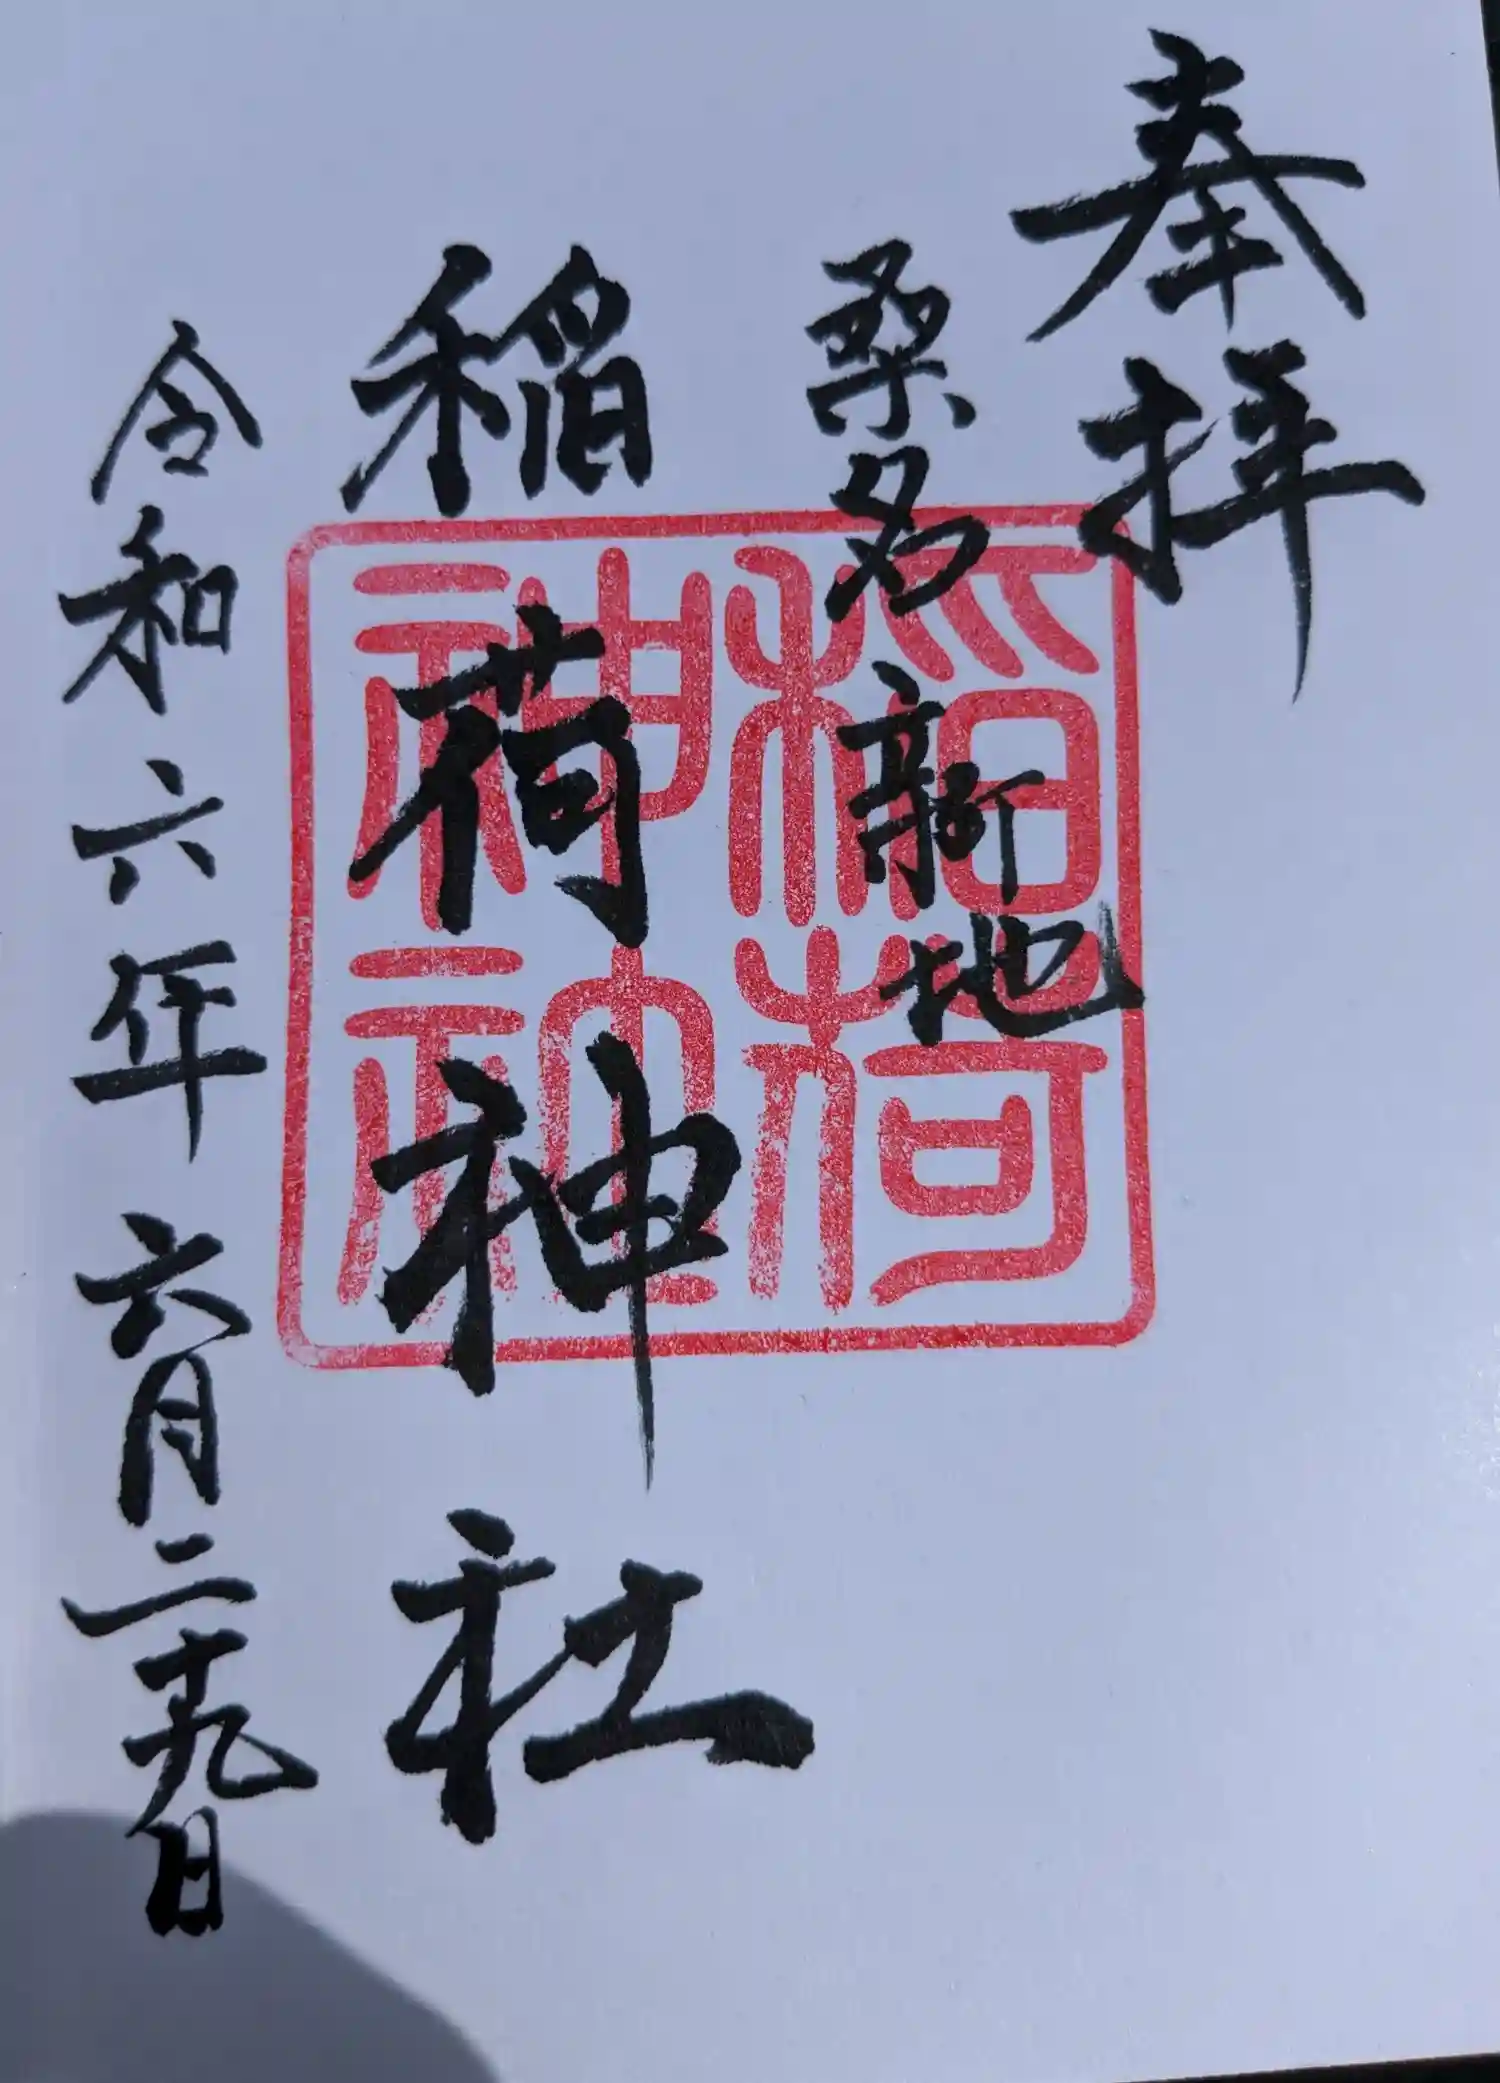 奉拝
桑名新地
稲荷神社
稲荷
神社
令和六年六月二十九日